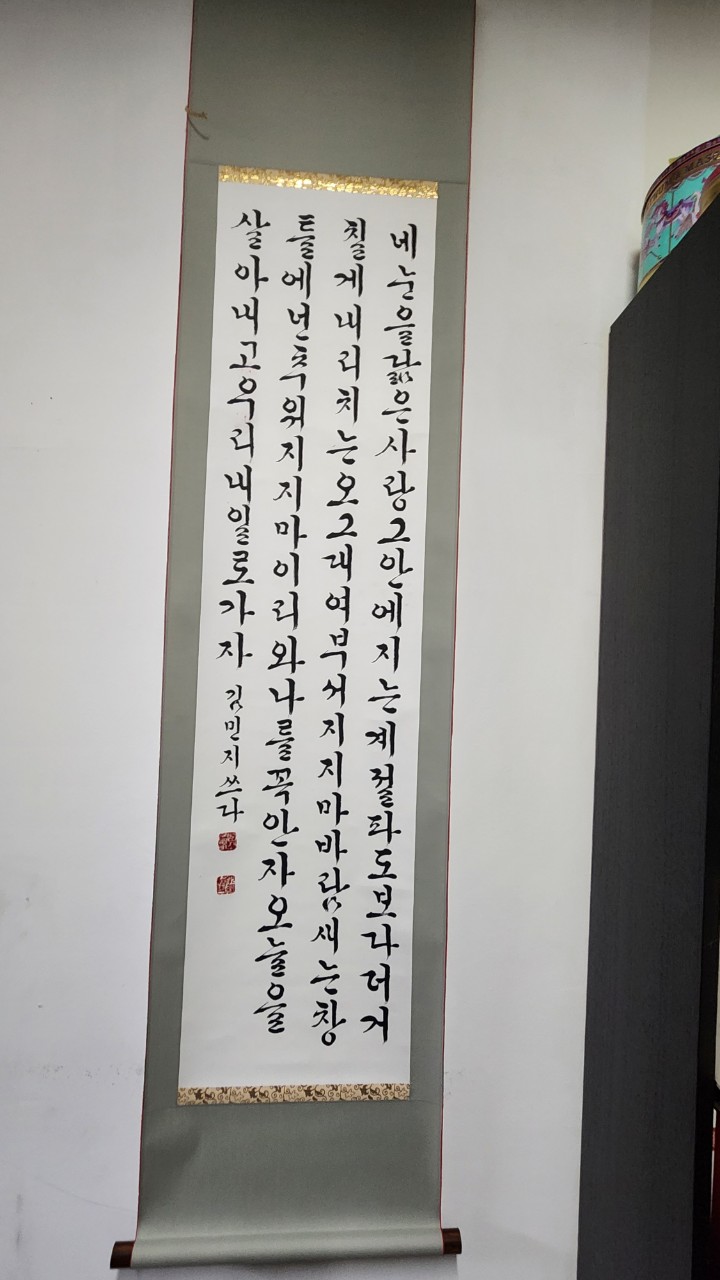 네눈을닮은사랑그안에지는계절파도보다더거
칠게내리치는오그대여부서지지마바람새는창
틀에넌추워지지마이리와나를꼭안자오늘을
살아내고우리내일로가자 김민지쓰다